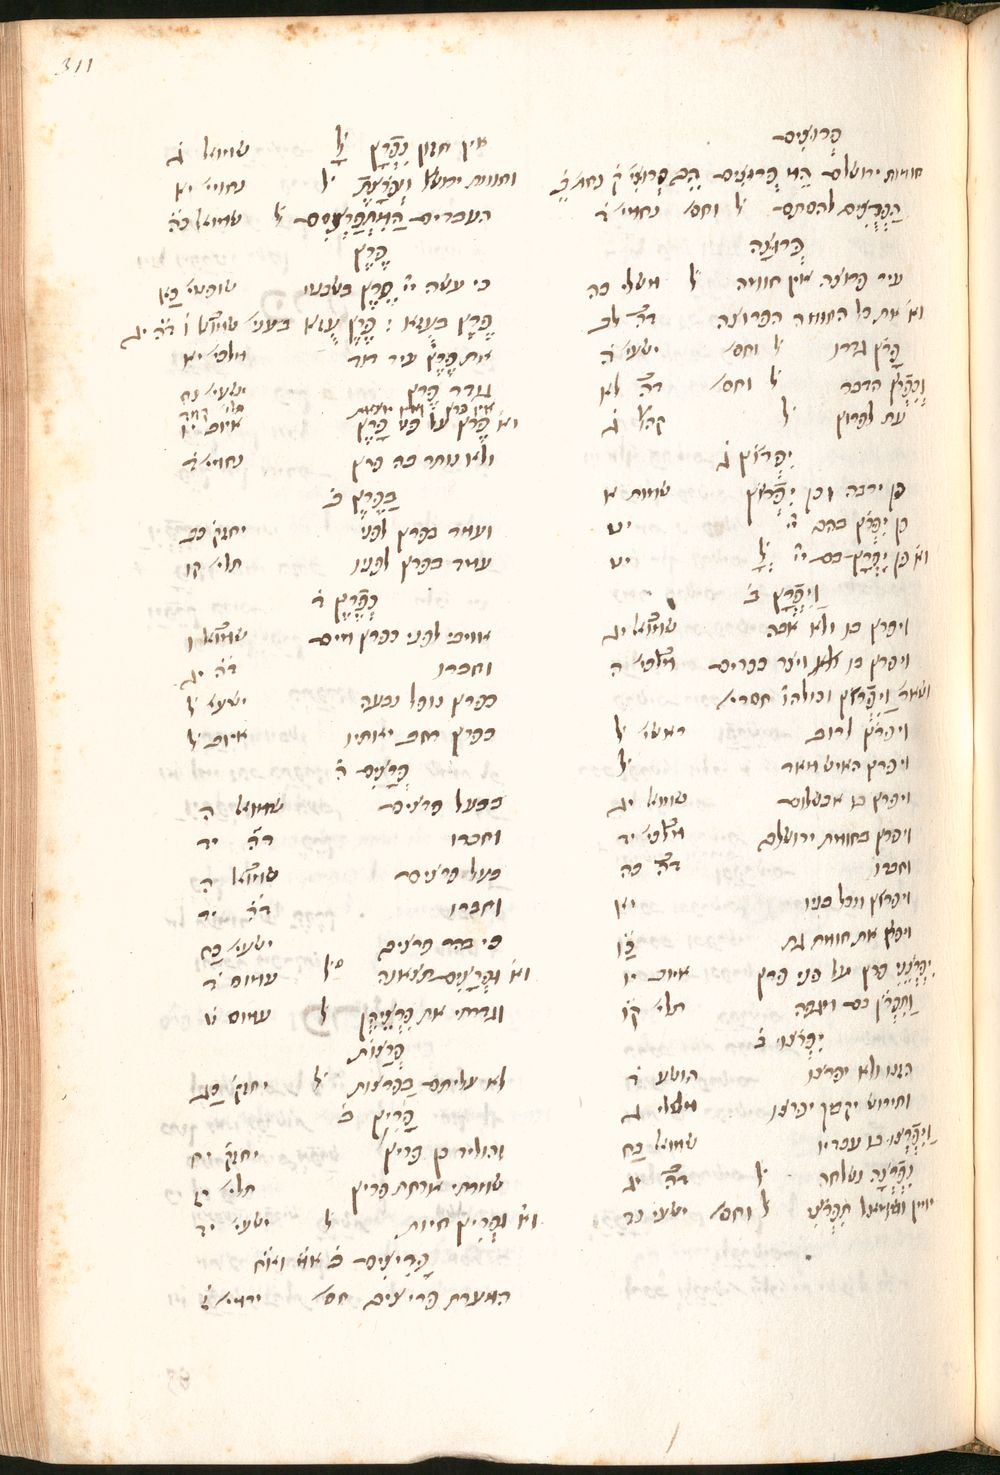 311
פרוצים
חומות ירושלם הם פרוצים
הפרצים להסתם ל וחס׳ נחמי׳ ד
פרוצה
עיר פרוצה אין חומה ל משלי כה
וא׳ את כל החומה הפרוצה דה׳ לב
פרץ גדרו ל וחס׳ ישעי׳ ה
וכפרץ הדבר ל וחס׳ דה׳ לא
עת לפרוץ ל קהל׳ ג
יפרוץ ג
כן ירבה וכן יפרוץ שמות א
פן יפרץ בהם יי׳ יט
וא׳ פן יפרץ בם יי׳ ל יט
ויפרץ ב
ויפרץ בו ולא אבה שמוא׳ יג
ויפרץ בו ויצר ככרים מלכי׳ ה
ושאר ויפרץ וכולהו חסרי׳
ויפרץ לרוב ראשי׳ ל
ויפרץ האיש מאד ל
ויפרץ בו אבשלום שמוא׳ יג
ויפרץ בחומת ירושלם מלכי׳ יד
וחברו דה׳ כה
ויפרוץ ויכל בניו יאו
ויפרץ את חומת גת כו
יפרצני פרץ על פני פרץ איוב יו
ותפרץ בם מגפה תלי׳ קו
יפרצו ב
הזנו ולא יפרצו הושע ד
ותירוש יקביך יפרצו משלי ג
ויפרצו בו עבדיו שמוא׳ כח
נפרצה נשלחה ל דה׳ יג
ימין ושמאל תפרצי ל וחס׳ ישעי׳ נד
אין חזון נפרץ ל שמוא׳ ג
וחומת ירושל׳ מפרצת ל נחמי׳ א
העבדים המתפרצים ל שמוא׳ כה
פרץ
כי עשה יי׳ פרץ בשבטי שופטי׳ כא
פרץ בעזא : פרץ עזא בעני׳ שמוא׳ ו דה׳ יג
את פרץ עיר דוד מלכי׳ יא
גודר פרץ ישעי׳ נח
אין פרץ ואין יוצאת תלי׳ קמד
וא׳ פרץ על פני פרץ איוב יו
ולא נותר בה פרץ נחמי׳ ו
בפרץ ב
ועמד בפרץ לפני יחזק׳ כב
עמד בפרץ לפניו תלי׳ קו
כפרץ ד
אויבי לפני כפרץ מים שמוא׳ ו
וחברו דה׳ יג
כפרץ נופל נבעה ישעי׳ ל
כפרץ רחב יאתיו איוב ל
פרצים ה
בבעל פרצים שמוא׳ ה
וחברו דה׳ יד
בעל פרצים שמוא׳ ה
וחברו דה׳ יד
כי בהר פרצים ישעי׳ כח
וא׳ ופרצים תצאנה ל עמוס ד
וגדרתי את פרציהן ל עמוס ט
פרצות
לא עליתם בפרצות ל יחזק׳ כג
פריץ ב
והוליד בן פריץ יחזק׳ יח
שמרתי ארחת פריץ תלי׳ יז
וא׳ ופריץ חיות ל ישעי׳ יד
פריצים
המערת פריצים חס׳ ירמי׳ ז